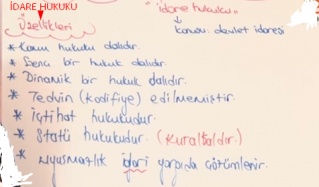 İDARE HUKUKU
"idare hukuku"
Özellikleri
kamu, devlet idaresi
* Kamu hukuku dalıdır.
* Genç bir hukuk dalıdır.
* Dinamik bir hukuk dalıdır.
* Tedvin (kodifiye) edilmemiştir.
* İçtihat hukukudur.
* Statü hukukudur. (kuralsaldır.)
* Uyuşmazlık idari yargıda çözümlenir.